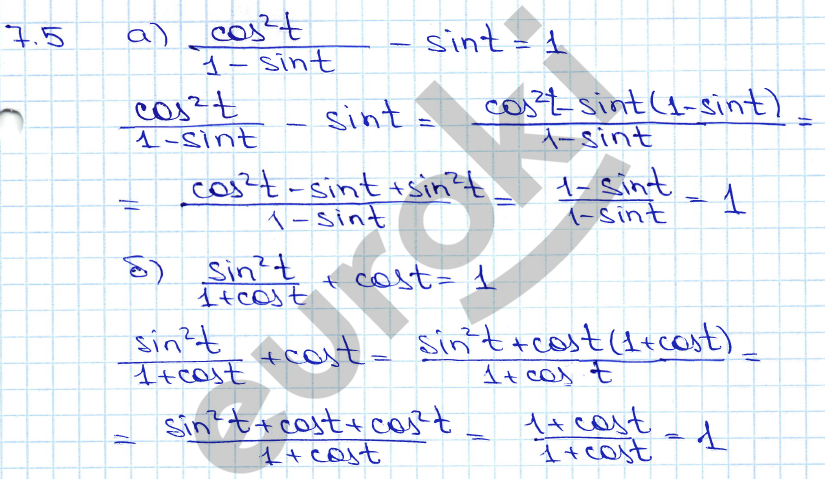 7.5 а) cos²t / (1 − sint) − sint = 1
cos²t / (1−sint) − sint = (cos²t − sint(1−sint)) / (1−sint) =
= (cos²t − sint + sin²t) / (1 − sint) = (1 − sint) / (1−sint) = 1
б) sin²t / (1+cost) + cost = 1
sin²t / (1+cost) + cost = (sin²t + cost(1+cost)) / (1+cos t) =
= (sin²t + cost + cos²t) / (1+cost) = (1 + cost) / (1+cost) = 1
euroki